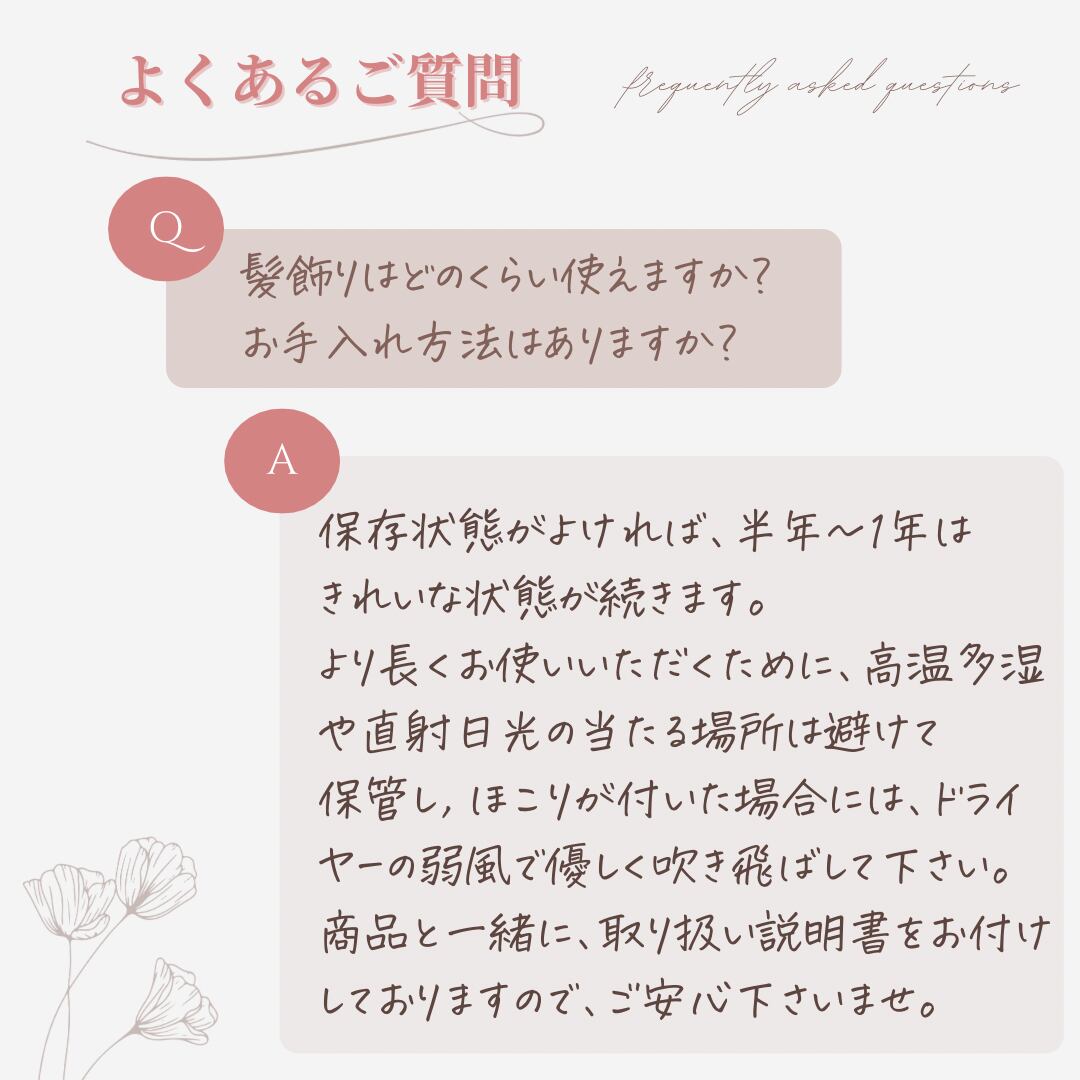 よくあるご質問
frequently asked questions
Q
髪飾りはどのくらい使えますか?
お手入れ方法はありますか?
A
保存状態がよければ、半年〜1年は
きれいな状態が続きます。
より長くお使いいただくために、高温多湿
や直射日光の当たる場所は避けて
保管し, ほこりが付いた場合には、ドライ
ヤーの弱風で優しく吹き飛ばして下さい。
商品と一緒に、取り扱い説明書をお付け
しておりますので、ご安心下さいませ。